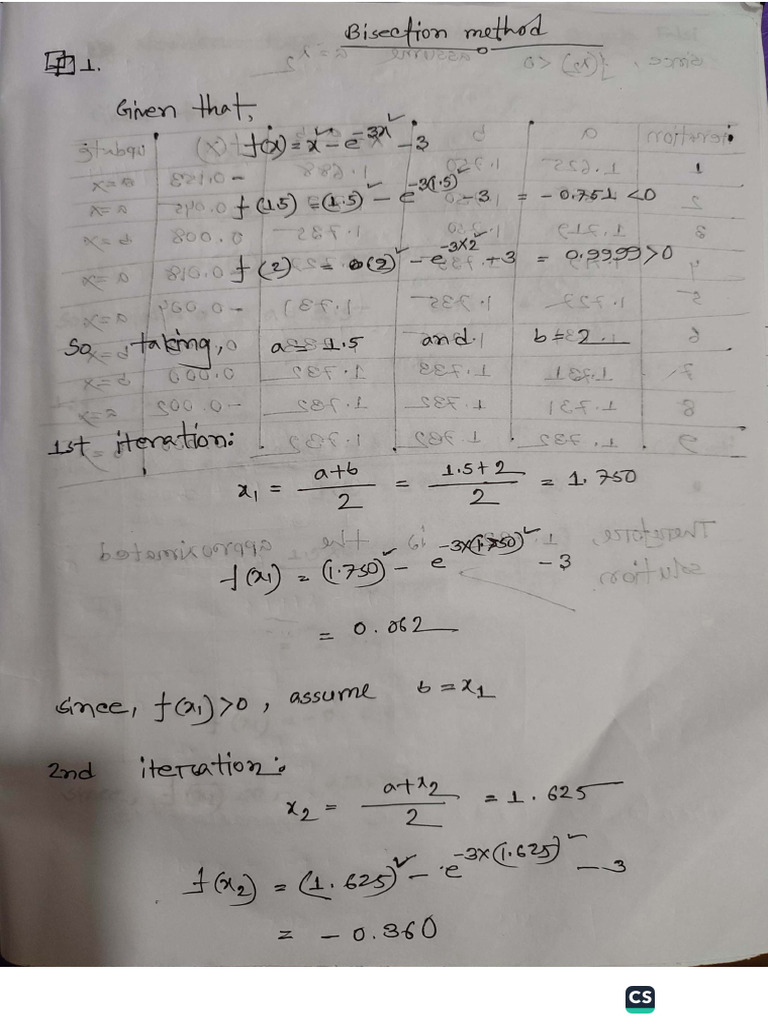 Bisection method
1.
Given that,
f(x) = x² - e^-3x² - 3
f(1.5) = (1.5)² - e^-3(1.5)² - 3 = - 0.751 < 0
f(2) = (2)² - e^-3×2² + 3 = 0.9999 > 0
So, taking, a = 1.5 and b = 2
1st iteration:
x₁ = (a+b)/2 = (1.5+2)/2 = 1.750
f(x₁) = (1.750)² - e^-3×(1.750)² - 3
= 0.062
Since, f(x₁) > 0, assume b = x₁
2nd iteration:
x₂ = (a+x₂)/2 = 1.625
f(x₂) = (1.625)² - e^-3×(1.625)² - 3
= - 0.360
CS